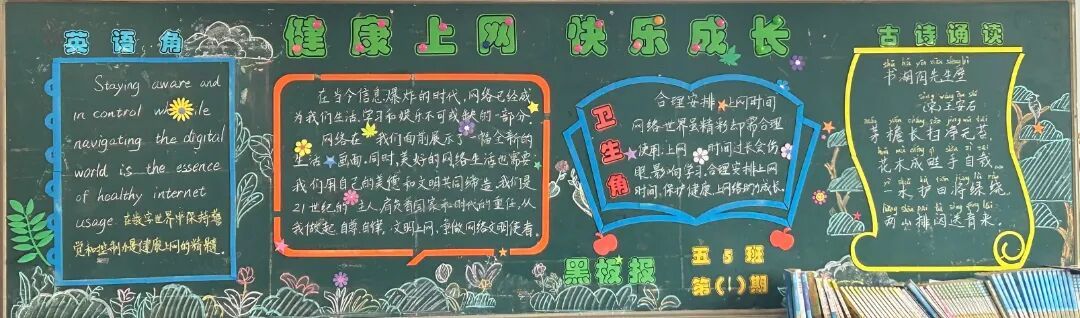 健康上网 快乐成长
英语角
Staying aware and
in control while
navigating the digital
world is the essence
of healthy internet
usage. 在数字世界中保持警
觉和控制力是健康上网的精髓。
在当今信息爆炸的时代,网络已经成
为我们生活、学习和娱乐不可或缺的一部分。
网络在我们面前展示了一幅全新的
生活画面,同时,美好的网络生活也需要
我们用自己的美德和文明共同缔造。我们是
21世纪的主人,肩负着国家和时代的重任,从
我做起,自尊、自律、文明上网,争做网络文明使者。
卫生角
合理安排上网时间
网络世界虽精彩却需合理
使用,上网时间过长会伤
眼、影响学习。合理安排上网
时间,保护健康,上网络助力成长。
黑板报
五5班
第(1)期
古诗诵读
shū hú yīn xiān shēng bì
书湖阴先生壁
sòng wáng ān shí
(宋)王安石
máo yán cháng sǎo jìng wú tái
茅檐长扫净无苔,
huā mù chéng qí shǒu zì zāi
花木成畦手自栽。
yì shuǐ hù tián jiāng lǜ rào
一水护田将绿绕,
liǎng shān pái tà sòng qīng lái
两山排闼送青来。